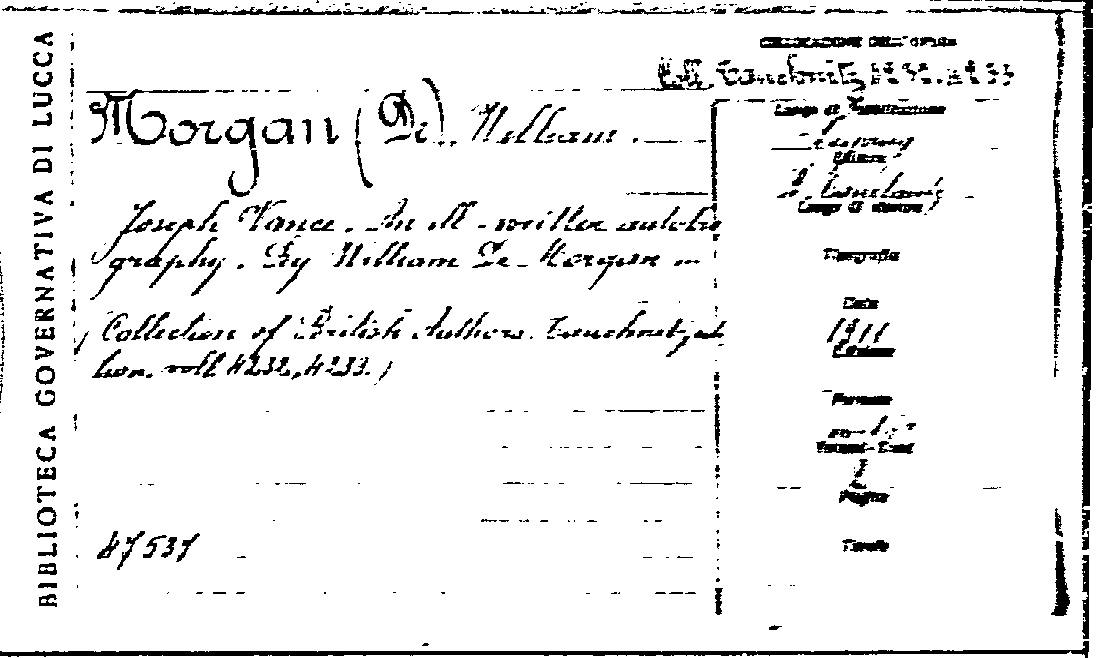 BIBLIOTECA GOVERNATIVA DI LUCCA
COLLOCAZIONE DELL'OPERA
Coll. Tauchnitz 4232.4233
Morgan (De). William.
Joseph Vance. An ill-written autobio
graphy. By William De-Morgan
(Collection of British Authors. Tauchnitz edi
tion. voll 4232, 4233.)
47537
Luogo di Pubblicazione
Editore
B. Tauchnitz
Luogo di stampa
Tipografia
Data
1911
Edizione
Formato
in-16°
Volumi-Tomi
2
Pagine
Tavole